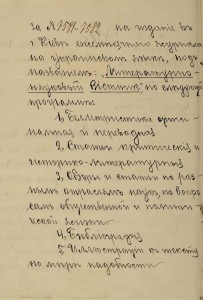 за № 7587-7592 на изданіе въ
г. Кіевѣ ежемѣсячнаго журнала
на украинскомъ языкѣ, подъ
названіемъ: „Литературно-
науковый Вістник", по следующей
программѣ:
1, Беллетристика ориги-
нальная и переводная
2. Статьи критическія и
историко-литературныя
3, Обзоры и статьи по раз-
нымъ отраслямъ наукъ, по вопро-
самъ общественной и полити-
ческой жизни
4. Библіографія
5, Иллюстраціи къ тексту
по мѣрѣ надобности